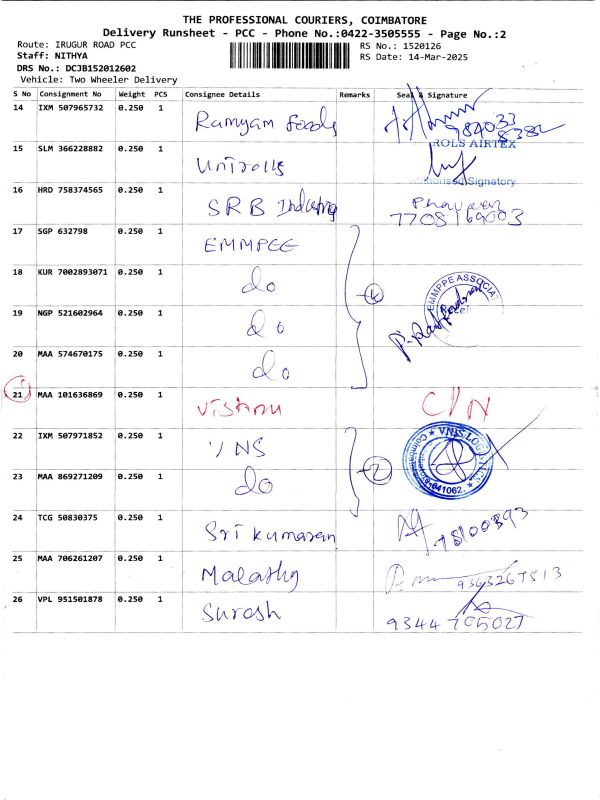 THE PROFESSIONAL COURIERS, COIMBATORE
Delivery Runsheet - PCC - Phone No.:0422-3505555 - Page No.:2
Route: IRUGUR ROAD PCC RS No.: 1520126
Staff: NITHYA RS Date: 14-Mar-2025
DRS No.: DCJB152012602
Vehicle: Two Wheeler Delivery
S No Consignment No Weight PCS Consignee Details Remarks Seal & Signature
14 IXM 507965732 0.250 1 Ramyam foods
15 SLM 366228882 0.250 1 Unirolls ROLS AIRTEX
Signatory
16 HRD 758374565 0.250 1 SRB Industry
7708169003
17 SGP 632798 0.250 1 EMMPEE
18 KUR 7002893071 0.250 1 do 4 EMMPPE ASSOCIAT
19 NGP 521602964 0.250 1 do
20 MAA 574670175 0.250 1 do
21 MAA 101636869 0.250 1 Vishnu C/N
22 IXM 507971852 0.250 1 VNS
23 MAA 869271209 0.250 1 do 2 641062
24 TCG 50830375 0.250 1 Sri kumaran
25 MAA 706261207 0.250 1 Malathy 9363267513
26 VPL 951501878 0.250 1 Suresh
9344705027